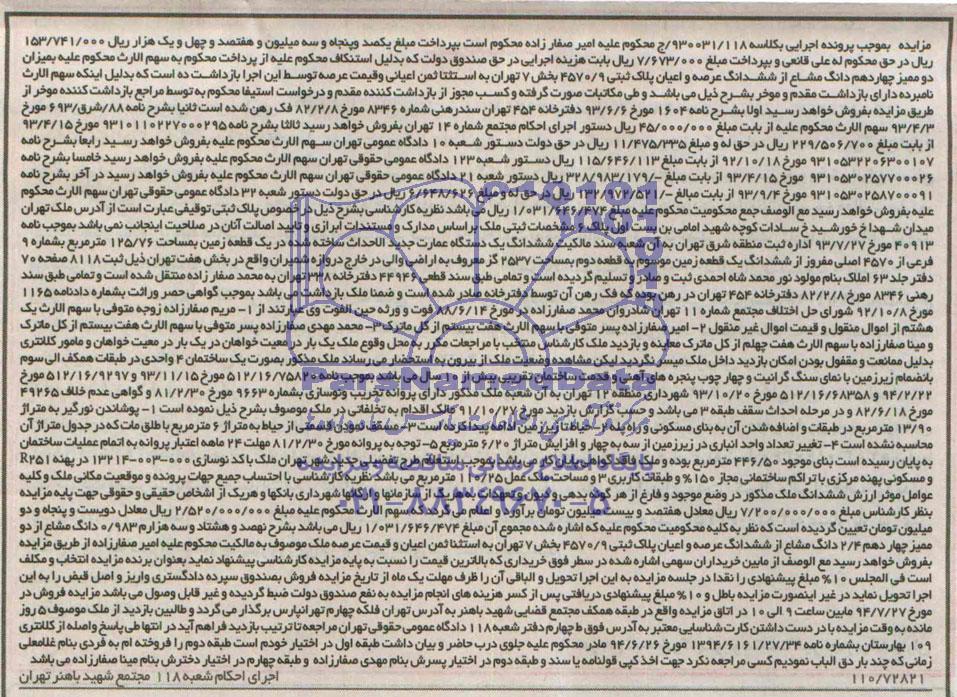 مزایده بموجب پرونده اجرایی بکلاسه ۹۳۰۰۳۱/۱۱۸/ج محکوم علیه امیر صفار زاده محکوم است بپرداخت مبلغ یکصد وپنجاه و سه میلیون و هفتصد و چهل و یک هزار ریال ۱۵۳/۷۴۱/۰۰۰
ریال در حق محکوم له علی قانعی و بپرداخت مبلغ ۷/۶۷۳/۰۰۰ ریال بابت هزینه اجرایی در حق صندوق دولت که بدلیل استنکاف محکوم علیه از پرداخت محکوم به سهم الارث محکوم علیه بمیزان
دو ممیز چهاردهم دانگ مشاع از ششدانگ عرصه و اعیان پلاک ثبتی ۴۵۷۰/۹ بخش ۷ تهران به استثنا ثمن اعیانی وقیمت عرصه توسط این اجرا بازداشت ده است که بدلیل اینکه سهم الارث
نامبرده دارای بازداشت مقدم و موخر بشرح ذیل می باشد و طی مکاتبات صورت گرفته و کسب مجوز از بازداشت کننده مقدم و درخواست استیفا محکوم به توسط مراجع بازداشت کننده موخر از
طریق مزایده بفروش خواهد رسید اولا بشرح نامه ۱۶۰۴ مورخ ۹۳/۶/۶ دفترخانه ۴۵۴ تهران سندرهنی شماره ۸۳۴۶ مورخ ۸۲/۲/۸ فک رهن شده است ثانیا بشرح نامه ۸۸/شرق/۶۹۳ مورخ
۹۳/۴/۳ سهم الارث محکوم علیه از بابت مبلغ ۴۵/۰۰۰/۰۰۰ ریال دستور اجرای احکام مجتمع شماره ۱۴ تهران بفروش خواهد رسید ثالثا بشرح نامه ۹۳۱۰۱۱۰۲۲۷۰۰۰۲۹۵ مورخ ۹۳/۴/۱۵
از بابت مبلغ ۲۲۹/۵۰۶/۷۰۰ ریال در حق له و مبلغ ۱۱/۴۷۵/۳۳۵ ریال در حق دولت دستور شعبه ۱۰ دادگاه عمومی تهران سهم الارث محکوم علیه بفروش خواهد رسید رابعا بشرح نامه
۹۳۱۰۵۳۲۲۰۶۳۰۰۱۰۷ مورخ ۹۲/۱۰/۱۸ از بابت مبلغ ۱۱۵/۶۴۶/۱۱۳ ریال دستور شعبه ۱۲۳ دادگاه عمومی حقوقی تهران سهم الارث محکوم علیه بفروش خواهد رسید خامسا بشرح نامه
۹۳۱۰۵۳۰۲۵۷۷۰۰۰۲۶ مورخ ۹۳/۴/۱۵ از بابت مبلغ /۳۲۸/۹۸۳/۱۷۹ ریال دستور شعبه ۲۱ دادگاه عمومی حقوقی تهران سهم الارث محکوم علیه بفروش خواهد رسید در آخر بشرح نامه
۹۳۱۰۵۳۰۲۵۸۷۰۰۰۹۱ مورخ ۹۳/۹/۴ از بابت مبلغ /۱۳۲/۹۷۲/۵۲۱ ریال در حق له و مبلغ ۶/۶۴۸/۶۲۶ ریال در حق دولت دستور شعبه ۳۲ دادگاه عمومی حقوقی تهران سهم الارث محکوم
علیه بفروش خواهد رسید مع الوصف جمع محکومیت محکوم علیه مبلغ ۱/۰۳۱/۶۴۶/۴۷۴ ریال می باشد نظریه کارشناسی بشرح ذیل در خصوص پلاک ثبتی توقیفی عبارت است از آدرس ملک تهران
میدان شهدا خ خورشید خ سادات کوچه شهید امامی بن بست اول پلاک ۶ مشخصات ثبتی ملک براساس مدارک و مستندات ابرازی و تایید اصالت آنان در صلاحیت اینجانب نمی باشد بموجب نامه
۴۰۹۱۳ مورخ ۹۳/۷/۲۷ اداره ثبت منطقه شرق تهران به آن شعبه سند مالکیت ششدانگ یک دستگاه عمارت جدید الاحداث ساخته شده در یک قطعه زمین بمساحت ۱۲۵/۷۶ مترمربع بشماره ۹
فرعی از ۴۵۷۰ اصلی مفروز از ششدانگ یک قطعه زمین موسوم به قطعه دوم بمساحت ۲۵۳۷ گز معروف به اراضی والی در خارج دروازه شمیران واقع در بخش هفت تهران ذیل ثبت ۸۱۱۸ صفحه ۷۰
دفتر جلد ۶۳ املاک بنام مولود نور محمد شاه احمدی ثبت و صادر و تسلیم گردیده است و تمامی طبق سند قطعی ۴۴۹۲۶ دفترخانه ۳۳۸ تهران به محمد صفار زاده منتقل شده است و تمامی طبق سند
رهنی ۸۳۴۶ مورخ ۸۲/۲/۸ دفترخانه ۴۵۴ تهران در رهن بوده که فک رهن آن توسط دفترخانه صادر شده است و ضمنا ملک بازداشت می باشد بموجب گواهی حصر وراثت بشماره دادنامه ۱۱۶۵
مورخ ۹۲/۱۰/۸ شورای حل اختلاف مجتمع شماره ۱۱ تهران شادروان محمد صفارزاده در مورخ ۸۸/۶/۱۴ فوت و ورثه حین الفوت وی عبارتند از ۱- مریم صفارزاده زوجه متوفی با سهم الارث یک
هشتم از اموال منقول و قیمت اموال غیر منقول ۲- امیر صفارزاده پسر متوفی با سهم الارث هفت بیستم از کل ماترک ۳- محمد مهدی صفارزاده پسر متوفی با سهم الارث هفت بیستم از کل ماترک
و مینا صفارزاده با سهم الارث هفت چهلم از کل ماترک معاینه و بازدید ملک کارشناس منتخب با مراجعات مکرر به محل وقوع ملک یک بار در معیت خواهان در یک بار در معیت خواهان و مامور کلانتری
بدلیل ممانعت و مقفول بودن امکان بازدید داخل ملک میسر نگردید لیکن مشاهده وضعیت ملک از بیرون به استحضار می رساند ملک مذکور بصورت یک ساختمان ۴ واحدی در طبقات همکف الی سوم
بانضمام زیرزمین با نمای سنگ گرانیت و چهار چوب پنجره های آهنی و قدمت ساختمان تقریبی بیش از ۱۰ سال می باشد بموجب نامه ۵۱۲/۱۶/۷۵۸۲۰ مورخ ۹۳/۱۱/۱۵ و ۵۱۲/۱۶/۹۲۹۷ مورخ
۹۴/۲/۲۲ و ۵۱۲/۱۶/۶۸۳۵۸ مورخ ۹۳/۱۰/۲۰ شهرداری منطقه ۱۲ تهران به آن شعبه ملک مذکور دارای پروانه تخریب ونوسازی بشماره ۹۶۶۳ مورخ ۸۱/۲/۳۰ و گواهی عدم خلاف ۴۹۲۶۵
مورخ ۸۲/۶/۱۸ و در مرحله احداث سقف طبقه ۳ می باشد و حسب گزارش بازدید مورخ ۹۳/۱۰/۲۷ مالک اقدام به تخلفاتی در ملک موصوف بشرح ذیل نموده است ۱- پوشاندن نورگیر به متراژ
۱۳/۹۰ مترمربع در طبقات و اضافه شدن آن به بنای مسکونی و راه پله ۲- حیاط تا زیرزمین ادامه پیدا کرده است ۳- مسقف نمودن قسمتی از حیاط به متراژ ۶ مترمربع با طلق مات که در جدول متراژ آن
محاسبه نشده است ۴- تغییر تعداد واحد انباری در زیرزمین از سه به چهار و افزایش متراژ ۶/۲۰ مترمربع ۵- توجه به پروانه مورخ ۸۱/۲/۳۰ مهلت ۲۴ ماهه اعتبار پروانه به اتمام عملیات ساختمان
به پایان رسیده است بنای موجود ۴۴۶/۵۰ مترمربع بوده و ملک فاقد گواهی پایان کار می باشد بموجب استعلام طرح تفضیلی جدید شهر تهران ملک با کد نوسازی ۰۰۰-۰۰۳-۱۳۲۱۴ در پهنه R۲۵۱
و مسکونی پهنه مرکزی با تراکم ساختمانی مجاز ۱۵۰% و طبقات کاربری ۳ و مساحت ملک عمل ۱۱۰/۲۵ مترمربع می باشد نظریه کارشناسی با احتساب جمیع جهات پرونده و موقعیت مکانی ملک و کلیه
عوامل موثر ارزش ششدانگ ملک مذکور در وضع موجود و فارغ از هر گونه بدهی و دیون و تعهد در قبال هر یک از سازمانها و ارگانها شهرداری بانکها و هریک از اشخاص حقیقی و حقوقی جهت پایه مزایده
بنظر کارشناس مبلغ ۷/۲۰۰/۰۰۰/۰۰۰ ریال معادل هفتصد و بیست میلیون تومان برآورد و اعلام می گردد که سهم الارث محکوم علیه مبلغ ۲/۵۲۰/۰۰۰/۰۰۰ ریال معادل دویست و پنجاه و دو
میلیون تومان تعیین گردیده است که نظر به کلیه محکومیت محکوم علیه که اشاره شده مجموع آن مبلغ ۱/۰۳۱/۶۴۶/۴۷۴ ریال می باشد بشرح نهصد و هشتاد و سه هزارم ۰/۹۸۳ دانگ مشاع از دو
ممیز چهار دهم ۲/۴ دانگ مشاع از ششدانگ عرصه و اعیان پلاک ثبتی ۴۵۷۰/۹ بخش ۷ تهران به استثنا ثمن اعیان و قیمت عرصه ملک موصوف به مالکیت محکوم علیه امیر صفارزاده از طریق مزایده
بفروش خواهد رسید مع الوصف از مابین خریداران سهمی اشاره شده در سطر فوق خریداری که بالاترین قیمت را نسبت به پایه مزایده کارشناسی پیشنهاد نماید بعنوان برنده مزایده انتخاب و مکلف
است فی المجلس ۱۰% مبلغ پیشنهادی را نقدا در جلسه مزایده به این اجرا تحویل و الباقی آن را ظرف مهلت یک ماه از تاریخ مزایده فروش بصندوق سپرده دادگستری واریز و اصل قبض را به این
اجرا تحویل نماید در غیر اینصورت مزایده باطل و ۱۰% مبلغ پیشنهادی دریافتی پس از کسر هزینه های انجام مزایده به نفع صندوق دولت ضبط گردیده و غیر قابل وصول می باشد مزایده فروش در
مورخ ۹۴/۷/۲۷ مابین ساعت ۹ الی ۱۰ در اتاق مزایده واقع در طبقه همکف مجتمع قضایی شهید باهنر به آدرس تهران فلکه چهارم تهرانپارس برگذار می گردد و طالبین بازدید از ملک موصوف ۵ روز
مانده به وقت مزایده با در دست داشتن کارت شناسایی معتبر به آدرس فوق ط چهارم دفتر شعبه ۱۱۸ دادگاه عمومی حقوقی تهران مراجعه تا ترتیب بازدید فراهم آید در انتها طی پاسخ واصله از کلانتری
۱۰۹ بهارستان بشماره نامه ۱۳۹۴/۶۱۶۱/۲۷/۳۴ مورخ ۹۴/۶/۲۶ مادر محکوم علیه جلوی درب حاضر و بیان داشت طبقه اول در اختیار خودم است طبقه دوم را فروخته ام به فردی بنام غلامعلی
زمانی که چند بار دق الباب نمودیم کسی مراجعه نکرد جهت اخذ کپی قولنامه یا سند و طبقه دوم در اختیار پسرش بنام مهدی صفارزاده و طبقه چهارم در اختیار دخترش بنام مینا صفارزاده می باشد
۱۱۰/۷۲۸۲۱ اجرای احکام شعبه ۱۱۸ مجتمع شهید باهنر تهران
ParsNamadData
پایگاه اطلاع رسانی مناقصه و مزایده
۰۲۱-۸۸۳۴۹۶۷۰-۵